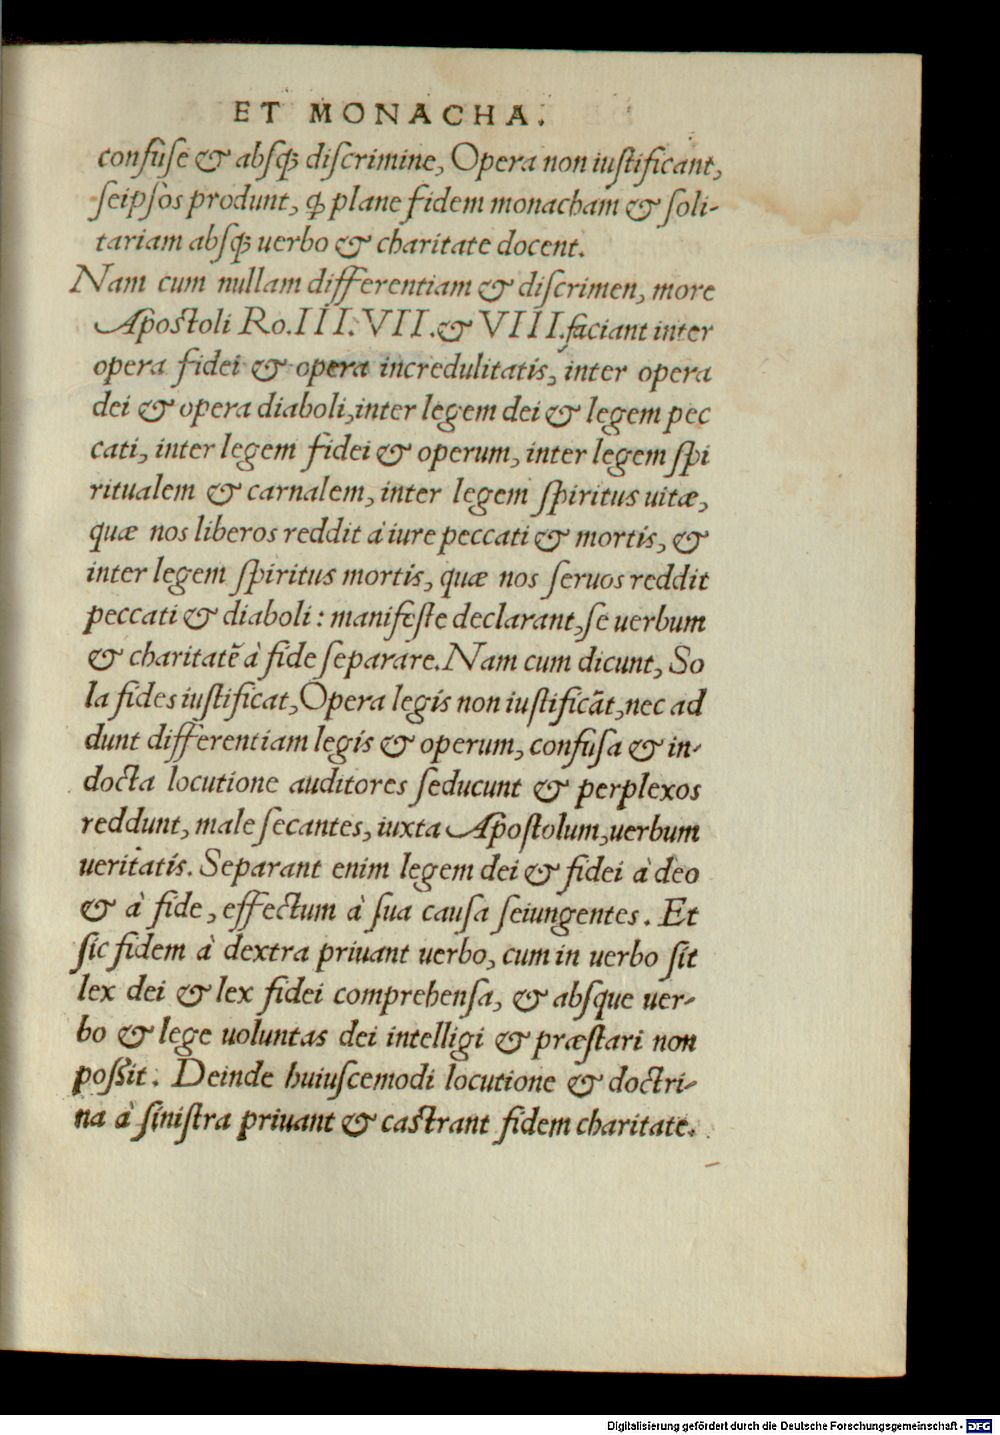 ET MONACHA.
confuse & absq; discrimine, Opera non iustificant,
seipsos produnt, ꝙ plane fidem monacham & soli-
tariam absq; uerbo & charitate docent.
Nam cum nullam differentiam & discrimen, more
Apostoli Ro. III. VII. & VIII. faciant inter
opera fidei & opera incredulitatis, inter opera
dei & opera diaboli, inter legem dei & legem pec
cati, inter legem fidei & operum, inter legem spi
ritualem & carnalem, inter legem spiritus uitæ,
quæ nos liberos reddit à iure peccati & mortis, &
inter legem spiritus mortis, quæ nos seruos reddit
peccati & diaboli: manifeste declarant, se uerbum
& charitatē à fide separare. Nam cum dicunt, So
la fides iustificat, Opera legis non iustificāt, nec ad
dunt differentiam legis & operum, confusa & in-
docta locutione auditores seducunt & perplexos
reddunt, male secantes, iuxta Apostolum, uerbum
ueritatis. Separant enim legem dei & fidei à deo
& à fide, effectum à sua causa seiungentes. Et
sic fidem à dextra priuant uerbo, cum in uerbo sit
lex dei & lex fidei comprehensa, & absque uer-
bo & lege uoluntas dei intelligi & præstari non
possit. Deinde huiuscemodi locutione & doctri-
na à sinistra priuant & castrant fidem charitate.
Digitalisierung gefördert durch die Deutsche Forschungsgemeinschaft - DFG